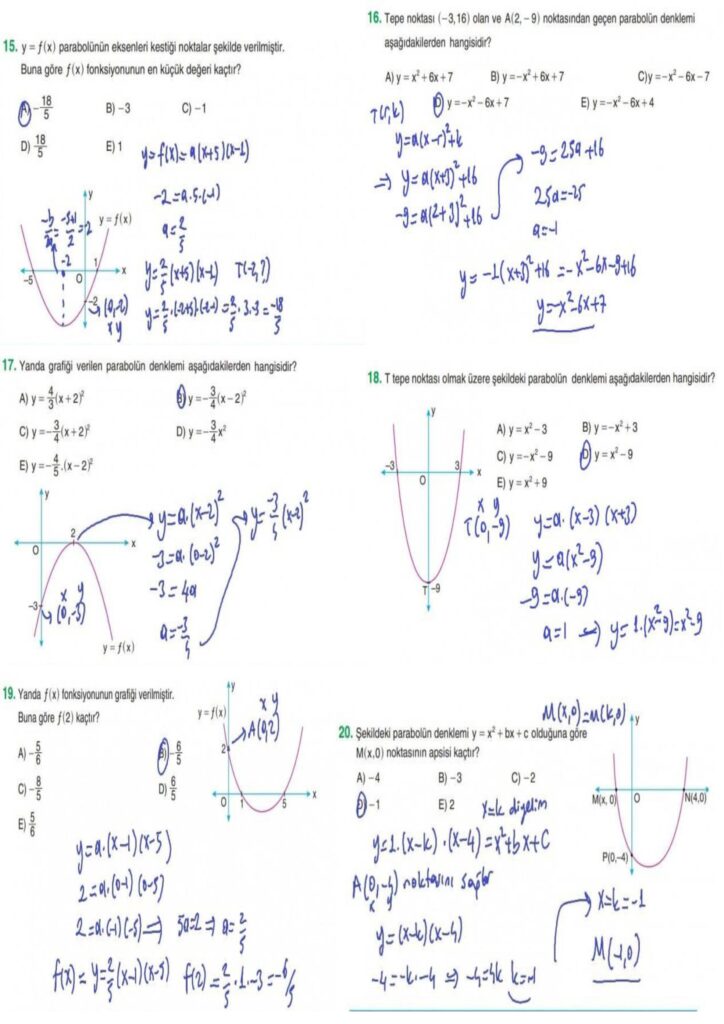 15. y = f(x) parabolünün eksenleri kestiği noktalar şekilde verilmiştir.
Buna göre f(x) fonksiyonunun en küçük değeri kaçtır?
A) -18/5 B) -3 C) -1
D) 18/5 E) 1
y=f(x)=a(x+5)(x-1)
-2=a.5.(-1)
a=2/5
y=2/5(x+5)(x-1) T(-2,?)
y=2/5.(-2+5).(-2-1)=2/5.3.-3=-18/5
y
y = f(x)
-b/2a=-5+1/2=-2
-2
-5
1
x
0
-2
(0,-2)
x y
16. Tepe noktası (-3,16) olan ve A(2,-9) noktasından geçen parabolün denklemi
aşağıdakilerden hangisidir?
A) y = x² + 6x + 7 B) y = -x² + 6x + 7 C) y = -x² - 6x - 7
D) y = -x² - 6x + 7 E) y = -x² - 6x + 4
T(r,k)
y=a(x-r)²+k
⇒ y=a(x+3)²+16
-9=a(2+3)²+16
-9=25a+16
25a=-25
a=-1
y=-1(x+3)²+16=-x²-6x-9+16
y=-x²-6x+7
17. Yanda grafiği verilen parabolün denklemi aşağıdakilerden hangisidir?
A) y = 4/3(x+2)² B) y = -3/4(x-2)²
C) y = -3/4(x+2)² D) y = -3/4x²
E) y = -4/5.(x-2)²
y
2
O
x
-3
x y
(0,-3)
y = f(x)
y=a.(x-2)²
-3=a.(0-2)²
-3=4a
18. T tepe noktası olmak üzere şekildeki parabolün denklemi aşağıdakilerden hangisidir?
A) y = x² - 3 B) y = -x² + 3
C) y = -x² - 9 D) y = x² - 9
E) y = x² + 9
y
-3
3
x
O
T -9
x y
T(0,-9)
y=a.(x-3)(x+3)
y=a(x²-9)
-9=a.(-9)
a=1 ⇒ y=1.(x²-9)=x²-9
19. Yanda f(x) fonksiyonunun grafiği verilmiştir.
Buna göre f(2) kaçtır?
A) -5/6 B) -6/5
C) -8/5 D) 6/5
E) 5/6
y
y = f(x)
x y
A(0,2)
2
O
1
5
x
y=a.(x-1)(x-5)
2=a.(0-1)(0-5)
2=a.(-1)(-5) ⇒ 5a=2 ⇒ a=2/5
f(x)=y=2/5(x-1)(x-5) f(2)=2/5.1.-3=-6/5
20. Şekildeki parabolün denklemi y = x² + bx + c olduğuna göre
M(x,0) noktasının apsisi kaçtır?
A) -4 B) -3 C) -2
D) -1 E) 2
M(x,0)=M(k,0)
y
M(x, 0)
O
N(4,0)
x
P(0,-4)
x=k diyelim
y=1.(x-k).(x-4)=x²+bx+c
A(0,-4) noktasını sağlar
x y
y=(x-k)(x-4)
-4=-k.-4 ⇒ -4=4k k=-1
x=k=-1
M(-1,0)